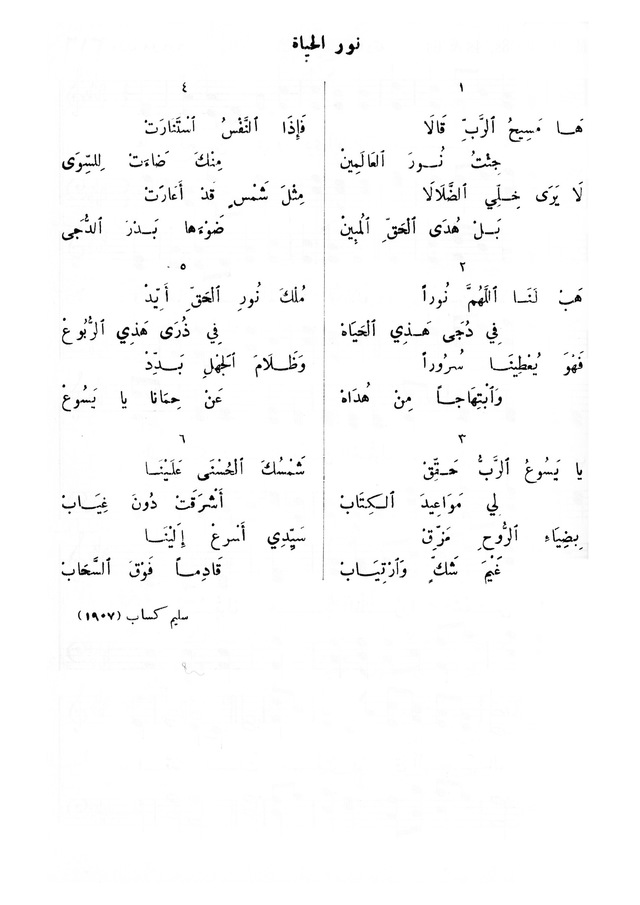 نور الحياة
١
هَا مَسِيحُ الرَّبِّ قَالَا
جِئْتُ نُورَ العَالَمِينْ
لَا يَرَى خِلِّي الضَّلَالَا
بَلْ هُدَى الحَقِّ المُبِينْ
٢
هَبْ لَنَا اللَّهُمَّ نُوراً
فِي دُجَى هَذِي الحَيَاهْ
فَهْوَ يُعْطِينَا سُرُوراً
وَابْتِهَاجاً مِنْ هُدَاهْ
٣
يا يَسُوعُ الرَّبُّ حَقِّقْ
لِي مَوَاعِيدَ الكِتَابْ
بِضِيَاءِ الرُّوحِ مَزِّقْ
غَيْمَ شَكٍّ وَارْتِيَابْ
٤
فَإِذَا النَّفْسُ اسْتَنَارَتْ
مِنْكَ ضَاءَتْ لِلسِّوَى
مِثْلَ شَمْسٍ قَدْ أَعَارَتْ
ضَوْءَهَا بَدْرَ الدُّجَى
٥
مُلْكَ نُورِ الحَقِّ أَيِّدْ
فِي ذُرَى هَذِي الرُّبُوعْ
وَظَلَامَ الجَهْلِ بَدِّدْ
عَنْ حِمَانَا يا يَسُوعْ
٦
شَمْسُكَ الحُسْنَى عَلَيْنَا
أَشْرَقَتْ دُونَ غِيَابْ
سَيِّدِي أَسْرِعْ إِلَيْنَا
قَادِماً فَوْقَ السَّحَابْ
سليم كساب (١٩٠٧)